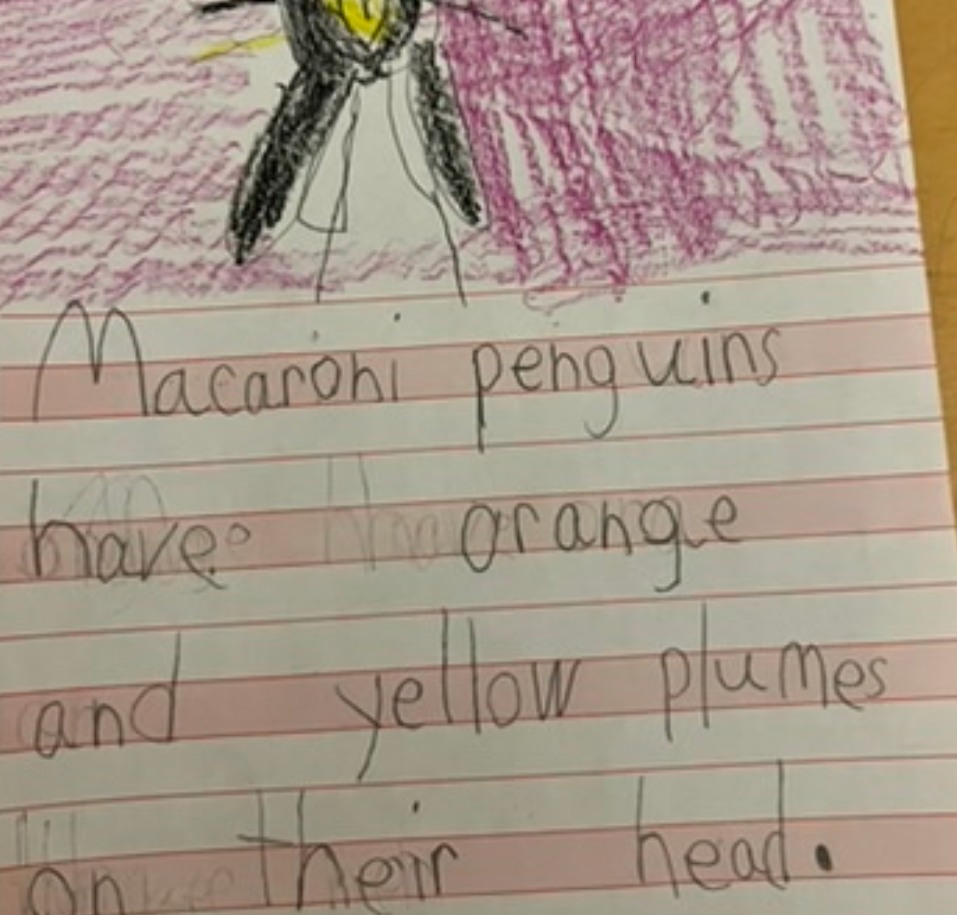 Macaroni penguins
have orange
and yellow plumes
on their head.